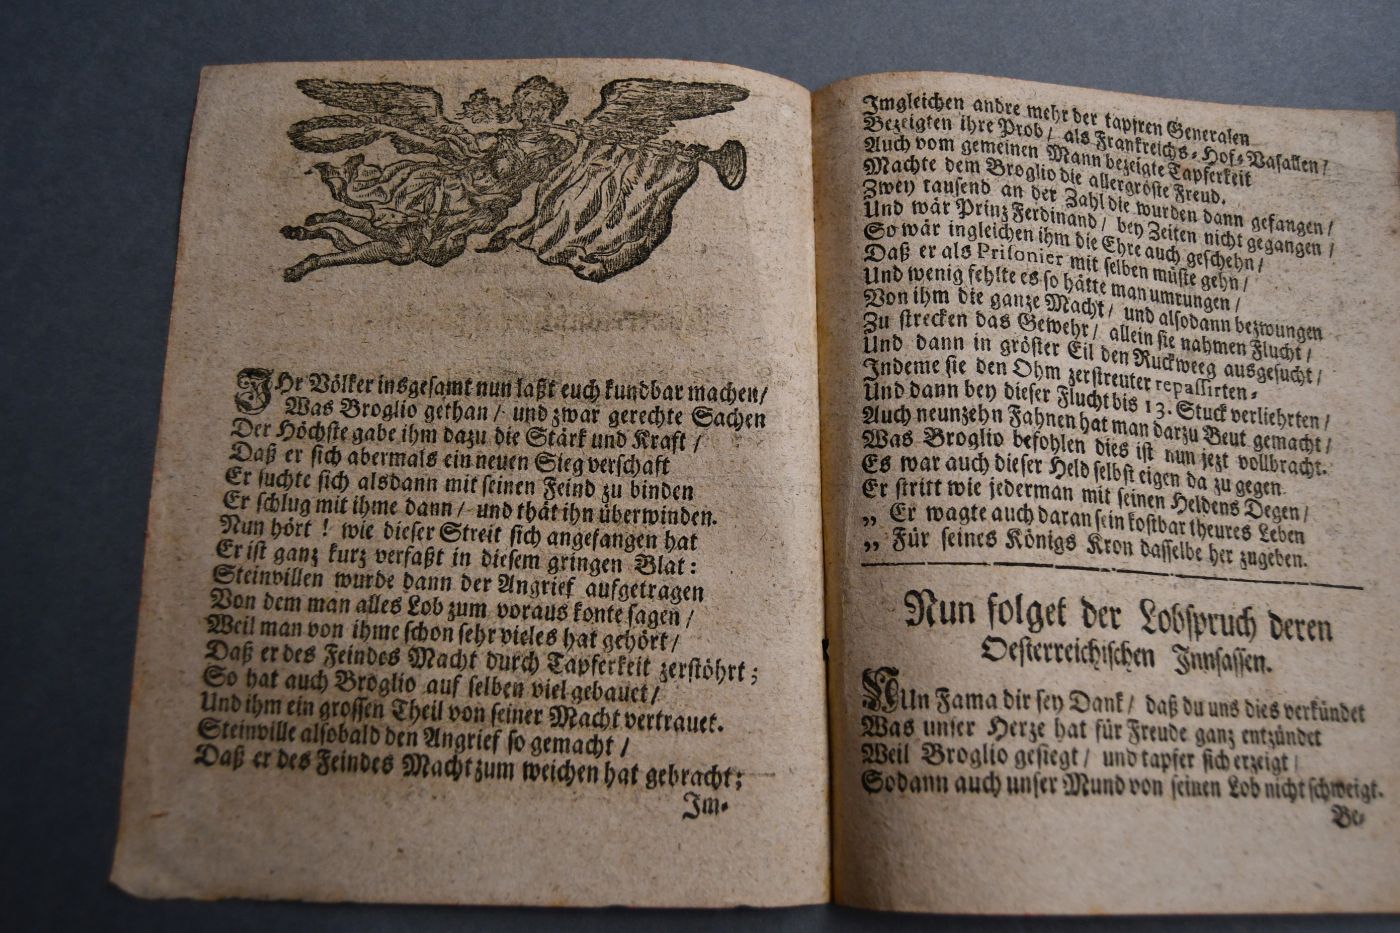 IHr Völker insgesamt nun laßt euch kundbar machen/
Was Broglio gethan / und zwar gerechte Sachen
Der Höchste gabe ihm dazu die Stärk und Kraft /
Daß er sich abermals ein neuen Sieg verschaft
Er suchte sich alsdann mit seinen Feind zu binden
Er schlug mit ihme dann / und thät ihn überwinden.
Nun hört ! wie dieser Streit sich angefangen hat
Er ist ganz kurz verfaßt in diesem gringen Blat:
Steinvillen wurde dann der Angrief aufgetragen
Von dem man alles Lob zum voraus konte sagen /
Weil man von ihme schon sehr vieles hat gehört /
Daß er des Feindes Macht durch Tapferkeit zerstöhrt;
So hat auch Broglio auf selben viel gebauet /
Und ihm ein grossen Theil von seiner Macht vertrauet.
Steinville alsobald den Angrief so gemacht /
Daß er des Feindes Macht zum weichen hat gebracht;
Im-
Imgleichen andre mehr der tapfren Generalen
Bezeigten ihre Prob / als Frankreichs-Hof-Vasallen /
Auch vom gemeinen Mann bezeigte Tapferkeit
Machte dem Broglio die allergröste Freud.
Zwey tausend an der Zahl die wurden dann gefangen /
Und wär Prinz Ferdinand / bey Zeiten nicht gegangen /
So wär ingleichen ihm die Ehre auch geschehn /
Daß er als Prisonier mit selben müste gehn /
Und wenig fehlte es so hätte man umrungen /
Von ihm die ganze Macht / und alsodann bezwungen
Zu strecken das Gewehr / allein sie nahmen Flucht /
Und dann in gröster Eil den Ruckweeg ausgesucht /
Indeme sie den Ohm zerstreuter repassirten-
Und dann bey dieser Flucht bis 13. Stuck verliehrten /
Auch neunzehn Fahnen hat man darzu Beut gemacht /
Was Broglio befohlen dies ist nun jezt vollbracht.
Es war auch dieser Held selbst eigen da zu gegen
Er stritt wie jederman mit seinen Heldens Degen /
„ Er wagte auch daran sein kostbar theures Leben
„ Für seines Königs Kron dasselbe her zugeben.
Nun folget der Lobspruch deren
Oesterreichischen Innsassen.
NUn Fama dir sey Dank / daß du uns dies verkündet
Was unser Herze hat für Freude ganz entzündet
Weil Broglio gesiegt / und tapfer sich erzeigt /
Sodann auch unser Mund von seinen Lob nicht schweigt.
Be-